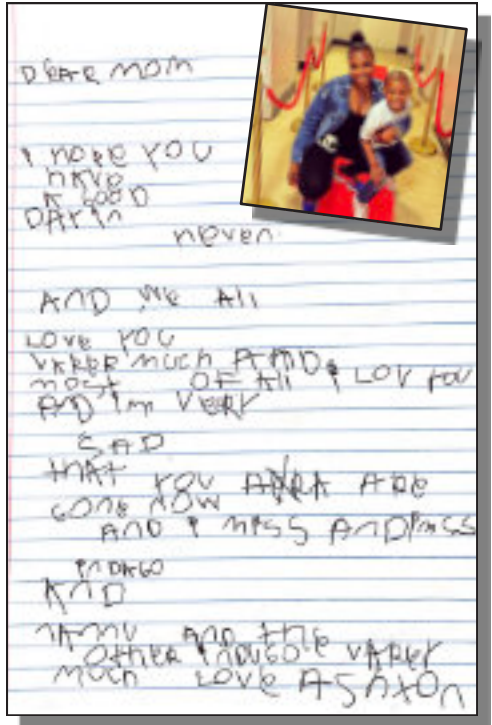 DEAR MOM
I HOPE YOU
HAVE
A GOOD
DAY In
heven
AND We All
LOVE YOU
VARER MUCH AND
MOST OF All I LOV YOU
AND I'm VERY
SAD
tHAT YOU ARE
GONE NOW
AND I MISS AND I MISS
INDAGO
AND
AND tHE
OTHER VAREY
MUCH LOVE